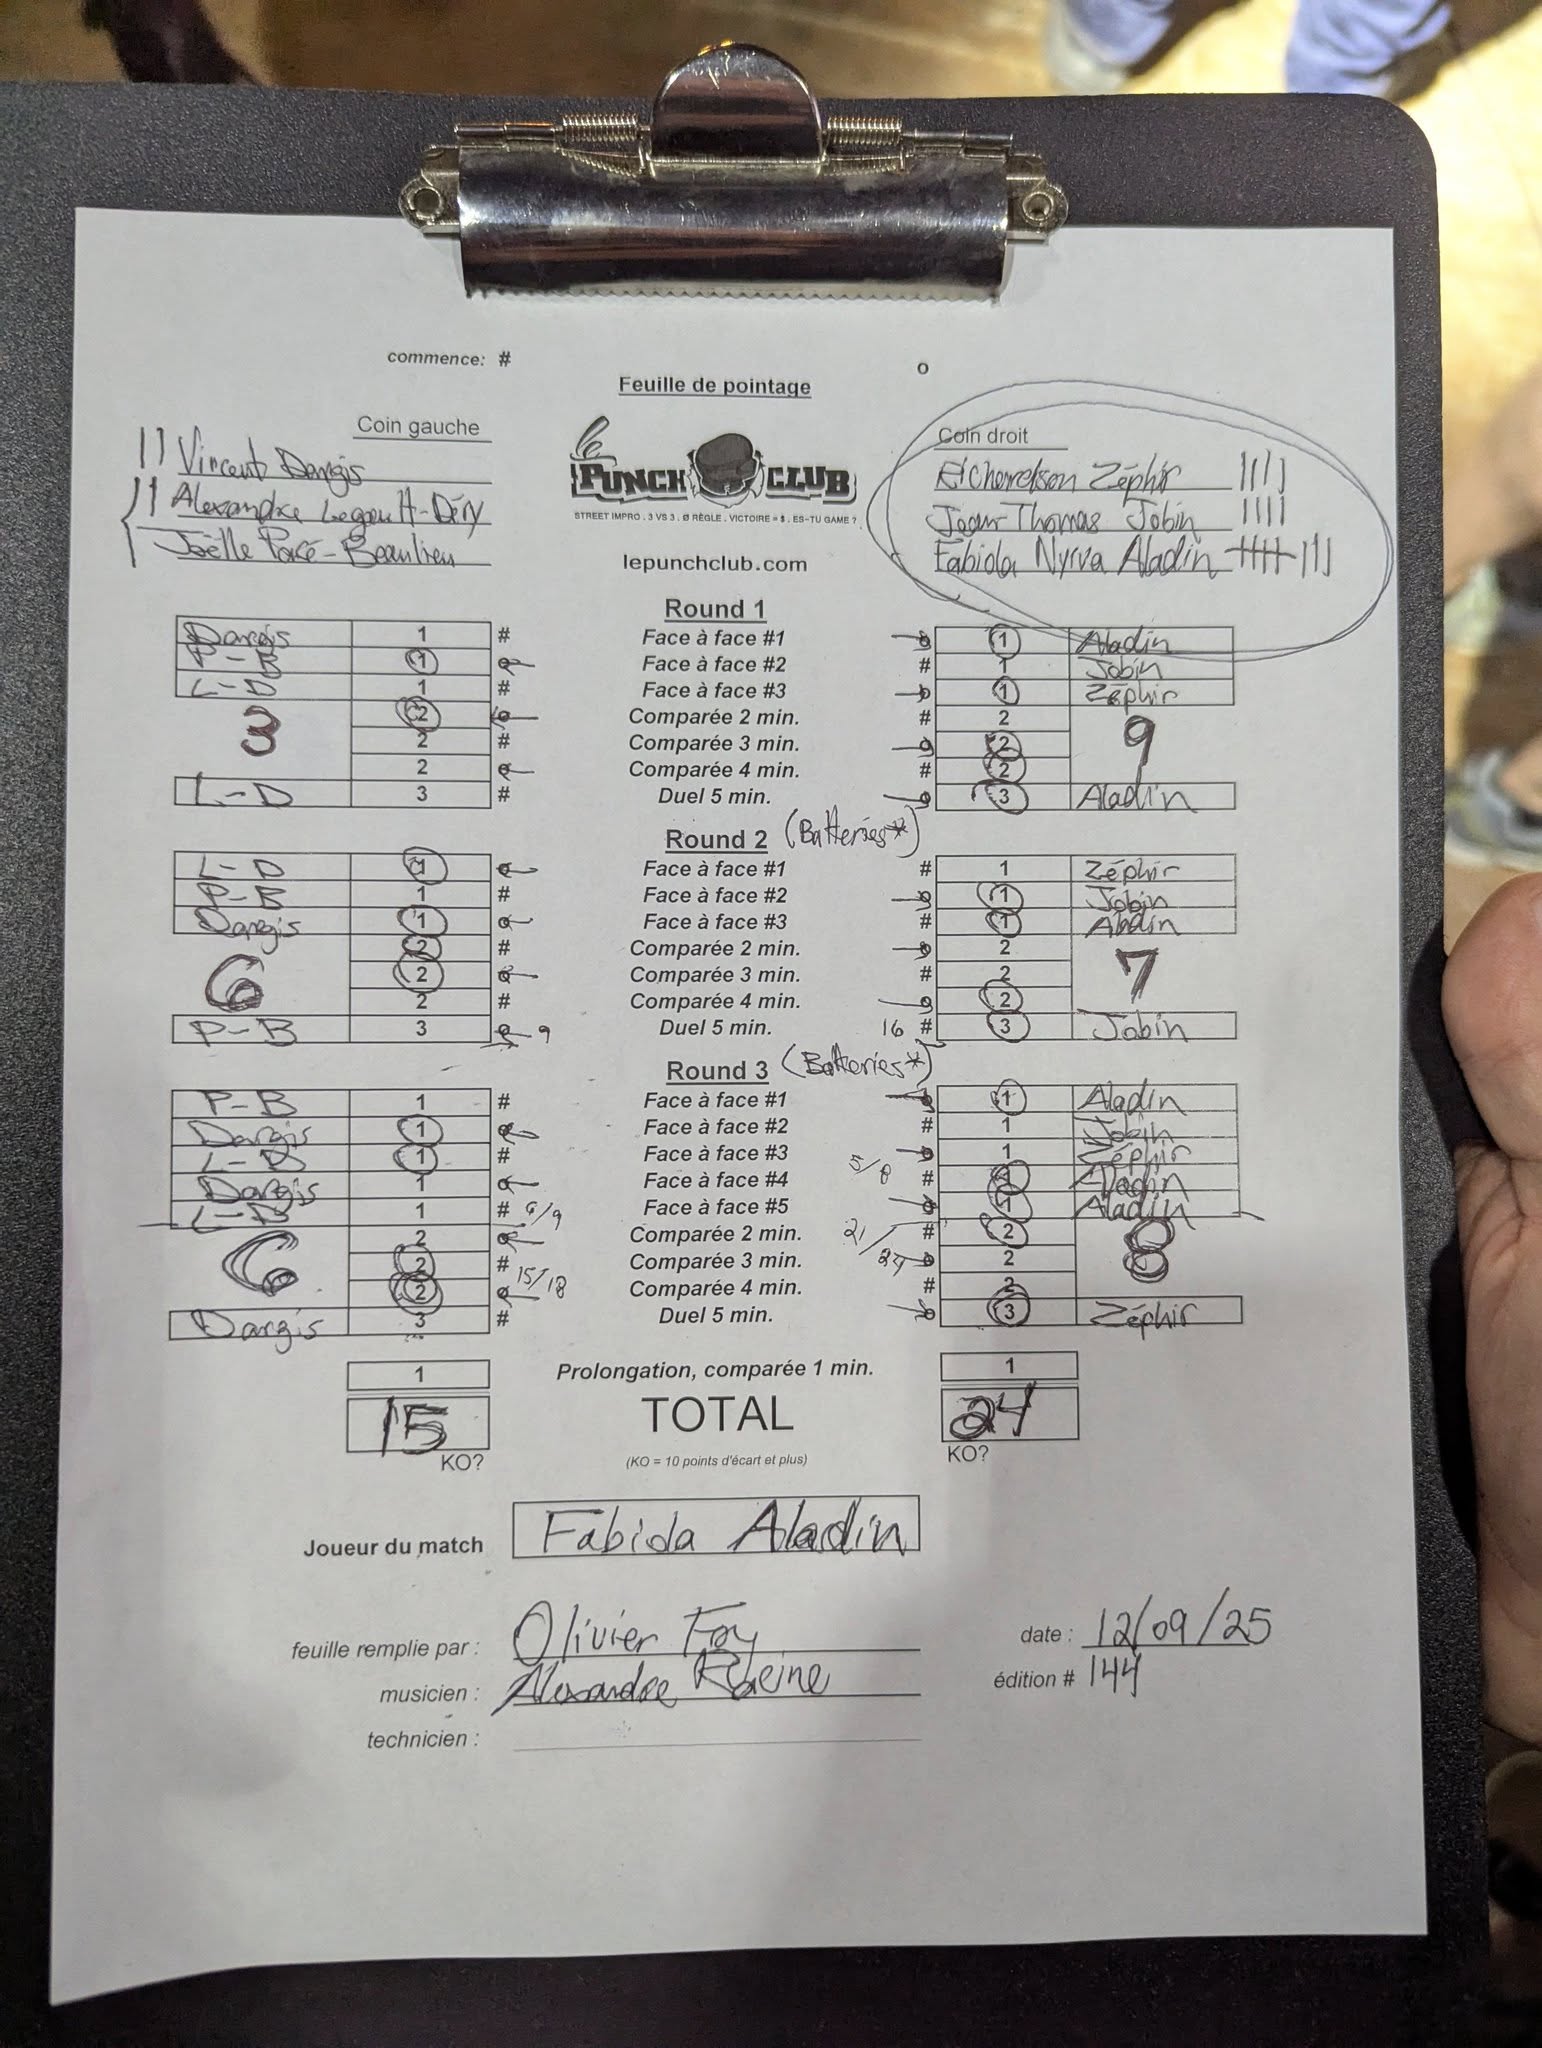 commence: # o
Feuille de pointage
Coin gauche
Coin droit
Vincent Dargis
Alexandre Legault-Déry
Joëlle Paré-Beaulieu
le PUNCH CLUB
STREET IMPRO . 3 VS 3 . Ø RÈGLE . VICTOIRE = $ . ES-TU GAME ?
lepunchclub.com
Richardson Zéphir
Jean-Thomas Jobin
Fabiola Nyrva Aladin
Round 1
Dargis 1 # Face à face #1 1 Aladin
P-B 1 Face à face #2 # 1 Jobin
L-D 1 # Face à face #3 1 Zéphir
2 Comparée 2 min. # 2
3 2 # Comparée 3 min. 2 9
2 Comparée 4 min. # 2
L-D 3 # Duel 5 min. 3 Aladin
Round 2 (Batteries*)
L-D 1 Face à face #1 # 1 Zéphir
P-B 1 # Face à face #2 1 Jobin
Dargis 1 Face à face #3 # 1 Aladin
2 # Comparée 2 min. 2
6 2 Comparée 3 min. # 2 7
2 # Comparée 4 min. 2
P-B 3 9 Duel 5 min. 16 # 3 Jobin
Round 3 (Batteries*)
P-B 1 # Face à face #1 1 Aladin
Dargis 1 Face à face #2 # 1 Jobin
L-D 1 # Face à face #3 1 Zéphir
Dargis 1 Face à face #4 5/8 # 1 Aladin
L-D 1 # 6/9 Face à face #5 1 Aladin
2 Comparée 2 min. 21/24 # 2
6 2 # Comparée 3 min. 2 8
2 15/18 Comparée 4 min. # 2
Dargis 3 # Duel 5 min. 3 Zéphir
1 Prolongation, comparée 1 min. 1
15 TOTAL 24
KO? (KO = 10 points d'écart et plus) KO?
Joueur du match Fabiola Aladin
feuille remplie par : Olivier Foy
date : 12/09/25
musicien : Alexandre
édition # 144
technicien :